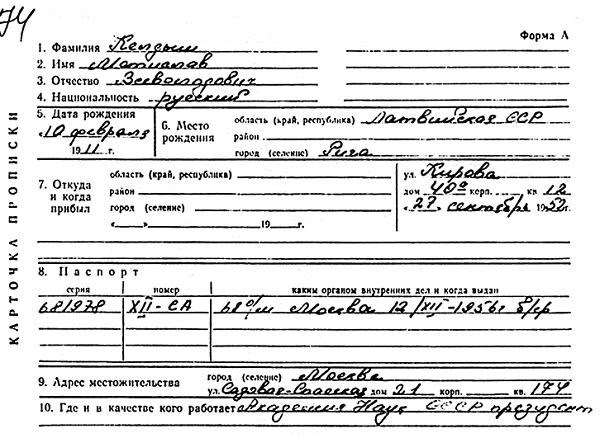 74
Форма А
КАРТОЧКА ПРОПИСКИ
1. Фамилия Келдыш
2. Имя Мстислав
3. Отчество Всеволодович
4. Национальность русский
5. Дата рождения
«10 февраля
1911 г.
6. Место рождения
область (край, республика) Латвийская ССР
район
город (селение) Рига
7. Откуда и когда прибыл
область (край, республика)
район
город (селение)
«___» 19 г.
ул. Кирова
дом 40а корп. кв 12
«27» сентября 1952 г.
8. Паспорт
серия номер каким органом внутренних дел и когда выдан
681978 XII-СА 68 о/м Москва 12/XII-1956г б/ср
9. Адрес местожительства
город (селение) Москва
ул. Садовая-Спасская дом 21 корп. кв. 174
10. Где и в качестве кого работает Академия Наук СССР президент